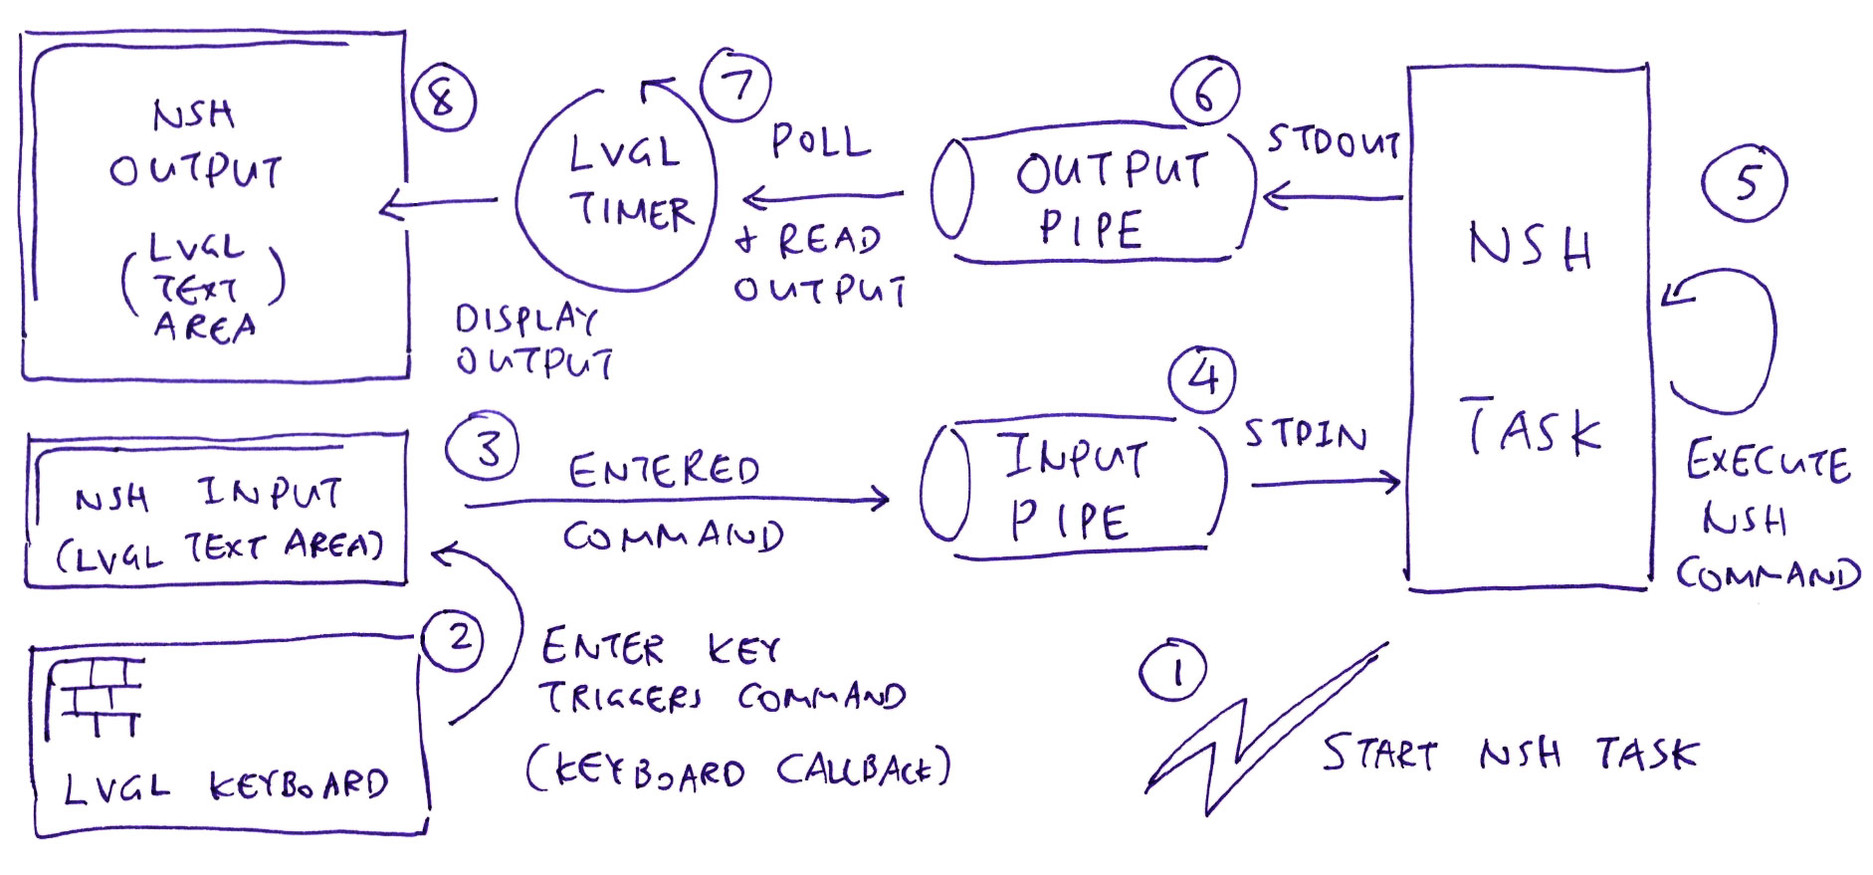 NSH
OUTPUT
(LVGL
TEXT
AREA)
8
LVGL
TIMER
7
POLL
+ READ
OUTPUT
DISPLAY
OUTPUT
6
OUTPUT
PIPE
STDOUT
NSH
TASK
5
EXECUTE
NSH
COMMAND
NSH INPUT
(LVGL TEXT AREA)
3
ENTERED
COMMAND
4
INPUT
PIPE
STDIN
LVGL KEYBOARD
2
ENTER KEY
TRIGGERS COMMAND
(KEYBOARD CALLBACK)
1
START NSH TASK